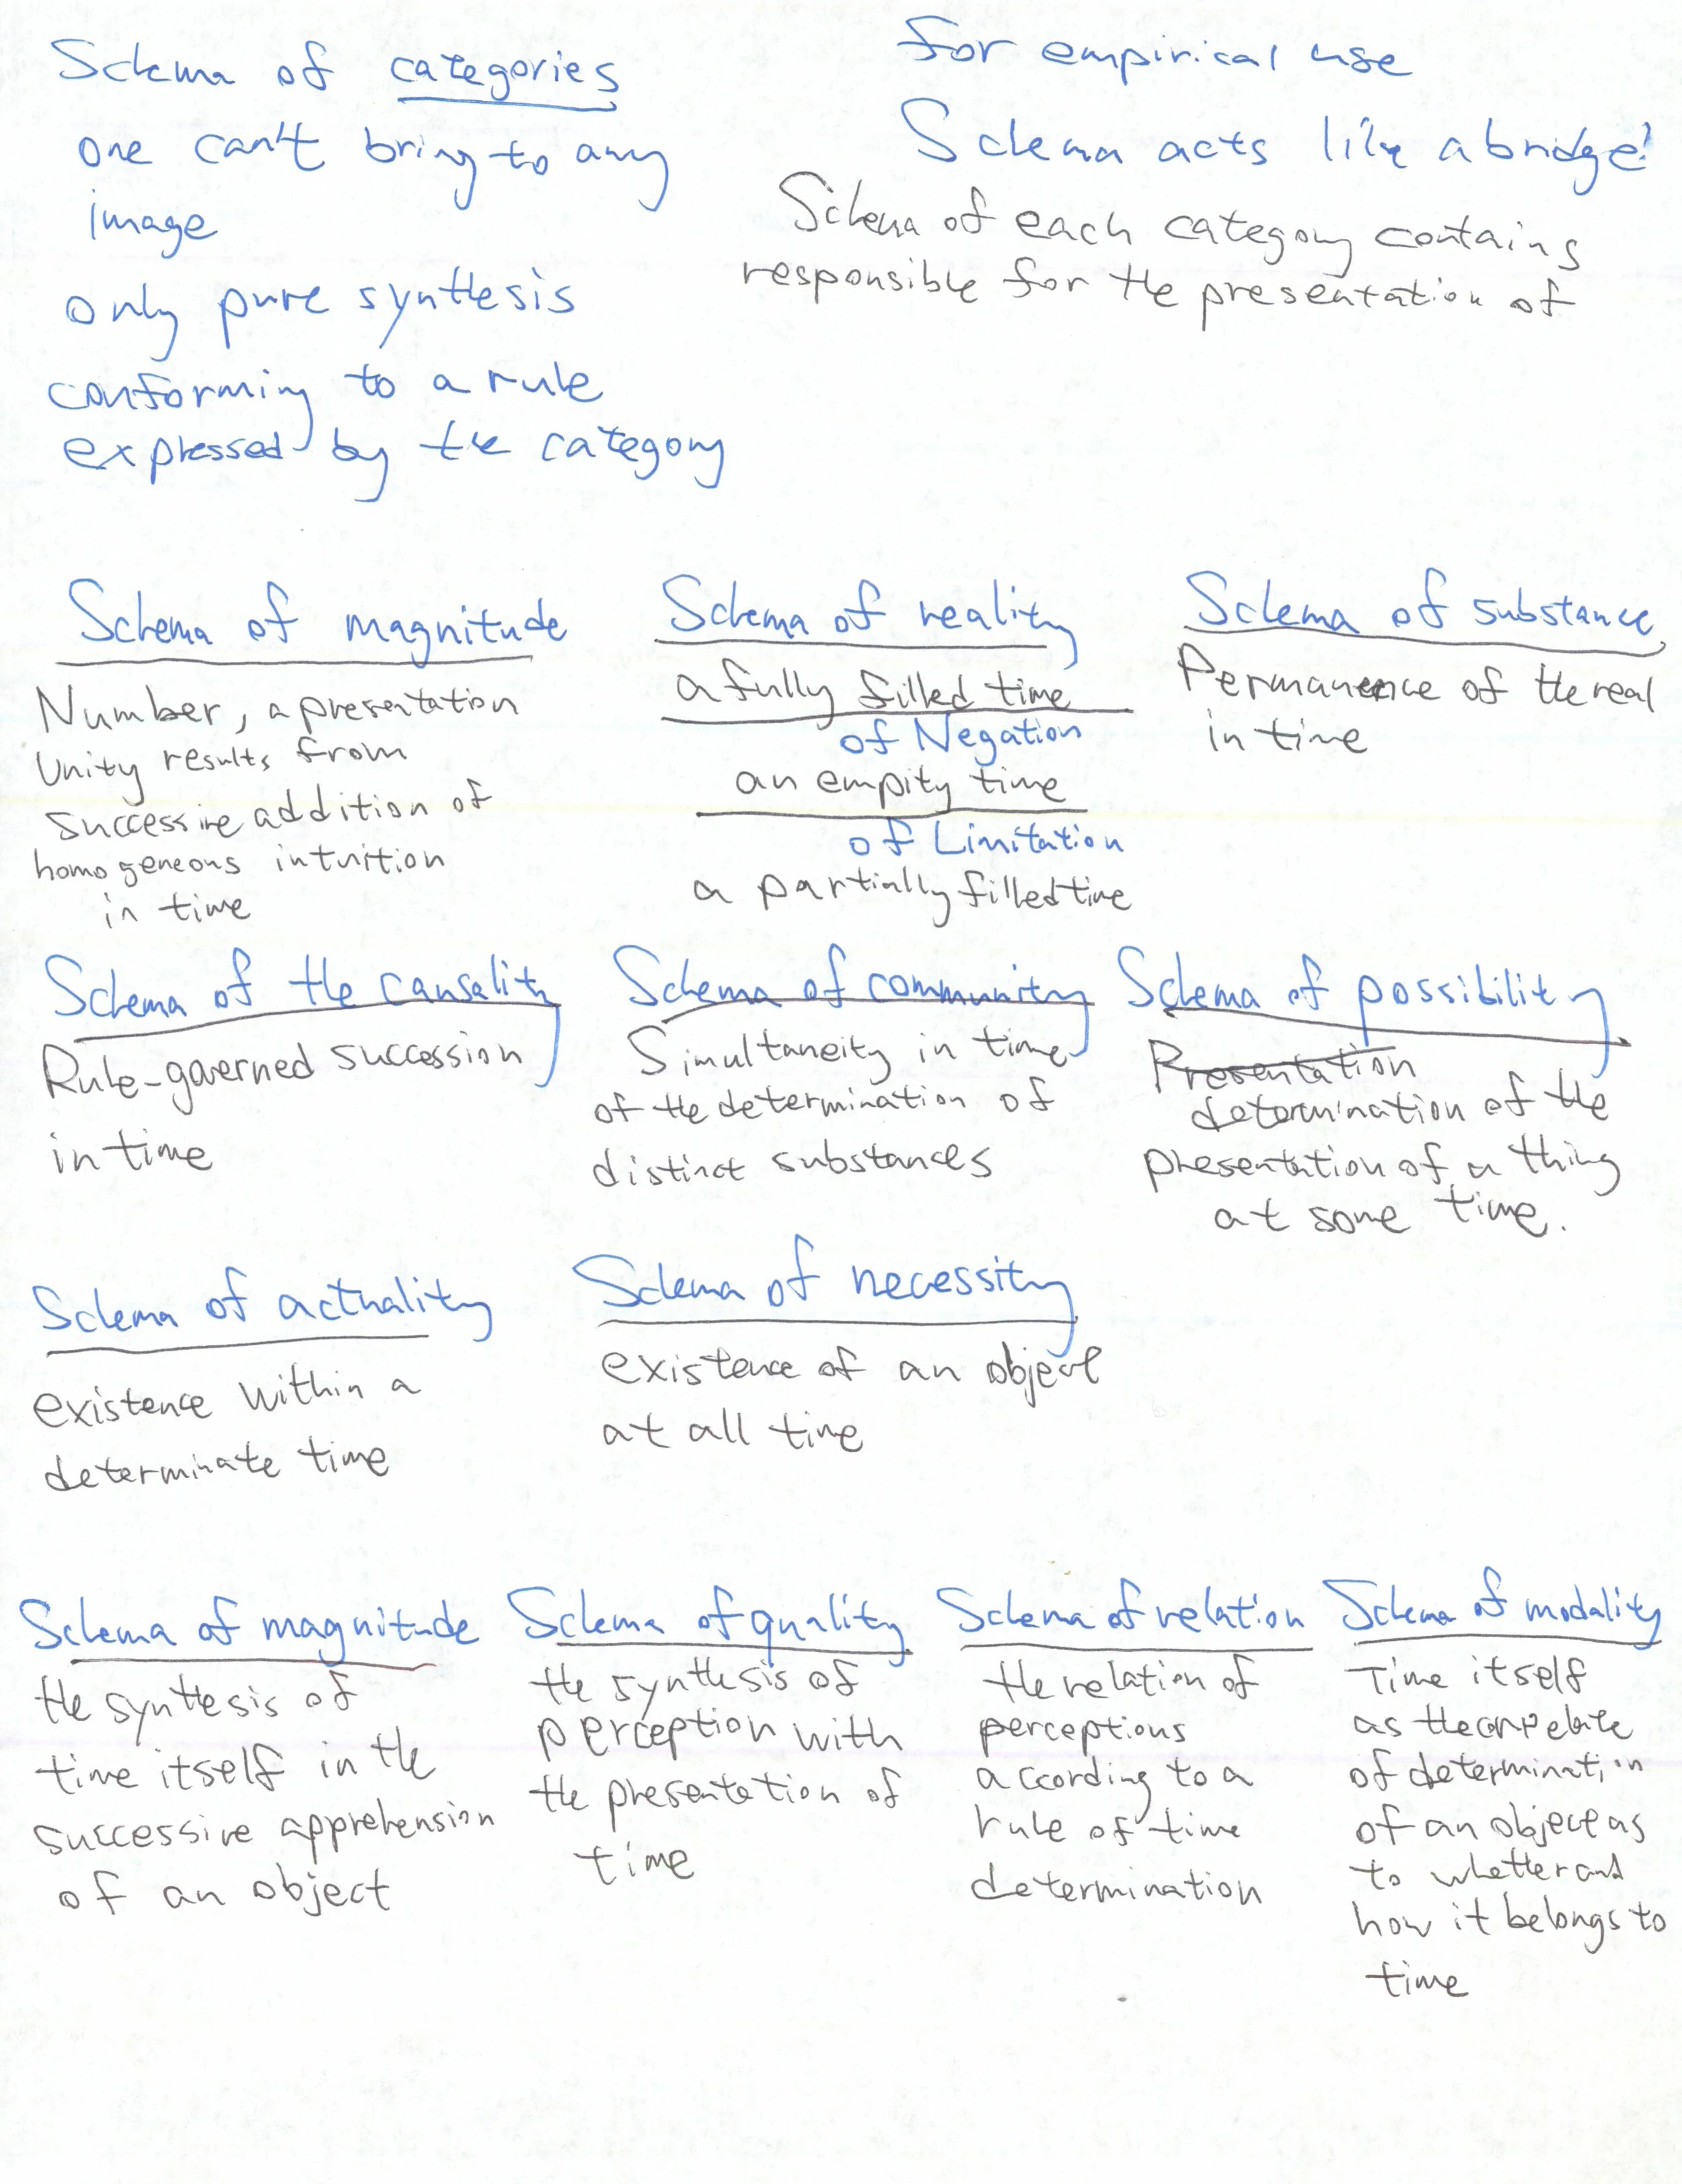 Schema of categories
one can't bring to any
image
only pure synthesis
conforming to a rule
expressed by the category
for empirical use
Schema acts like a bridge!
Schema of each category contains
responsible for the presentation of
Schema of magnitude
Number, a presentation
Unity results from
successive addition of
homogeneous intuition
in time
Schema of reality
a fully filled time
of Negation
an empity time
of Limitation
a partially filled time
Schema of substance
Permanence of the real
in time
Schema of the causality
Rule-governed succession
in time
Schema of community
Simultaneity in time
of the determination of
distinct substances
Schema of possibility
Presentation
determination of the
presentation of a thing
at some time.
Schema of actuality
existence within a
determinate time
Schema of necessity
existence of an object
at all time
Schema of magnitude
the synthesis of
time itself in the
successive apprehension
of an object
Schema of quality
the synthesis of
perception with
the presentation of
time
Schema of relation
the relation of
perceptions
according to a
rule of time
determination
Schema of modality
Time itself
as the correlate
of determination
of an object as
to whether and
how it belongs to
time